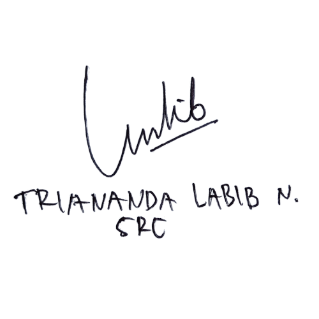 Labib
TRIANANDA LABIB N.
SRC